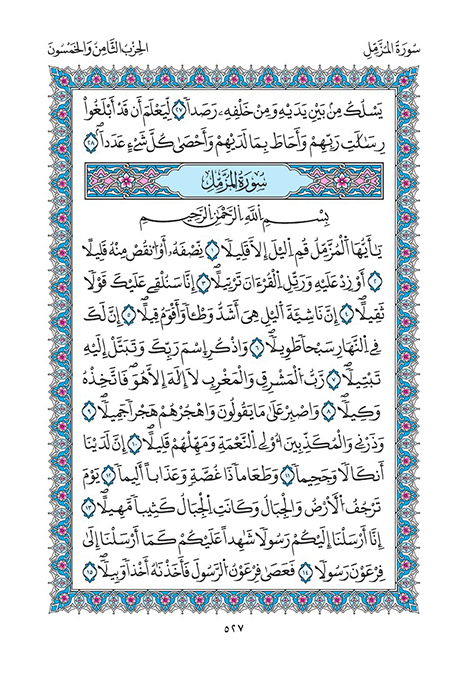 سُورَةُ المُزَّمِّلِ الحِزْبُ الثَّامِنُ وَالخَمْسُونَ
يَسْلُكُ مِنۢ بَيْنِ يَدَيْهِ وَمِنْ خَلْفِهِۦ رَصَداٗ ٢٧ لِّيَعْلَمَ أَن قَدَ اَبْلَغُواْ
رِسَٰلَٰتِ رَبِّهِمْ وَأَحَاطَ بِمَا لَدَيْهِمْ وَأَحْصَىٰ كُلَّ شَےْءٍ عَدَداٗ ٢٨
سُورَةُ المُزَّمِّلِ
بِسْمِ اللَّهِ الرَّحْمَٰنِ الرَّحِيمِ
يَٰأَيُّهَا اَلْمُزَّمِّلُ قُمِ اِليْلَ إِلَّا قَلِيلاٗ ١ نِّصْفَهُۥ أَوُ اُنقُصْ مِنْهُ قَلِيلاً
٢ أَوْ زِدْ عَلَيْهِ وَرَتِّلِ اِلْقُرْءَانَ تَرْتِيلاً ٣ اِنَّا سَنُلْقِے عَلَيْكَ قَوْلاٗ
ثَقِيلاً ٤ اِنَّ نَاشِئَةَ اَليْلِ هِيَ أَشَدُّ وَطْـٔاٗ وَأَقْوَمُ قِيلاً ٥ اِنَّ لَكَ
فِے اِلنَّهَارِ سَبْحاٗ طَوِيلاٗ ٦ وَاذْكُرِ اِسْمَ رَبِّكَ وَتَبَتَّلِ اِلَيْهِ
تَبْتِيلاٗ ٧ رَّبُّ اُلْمَشْرِقِ وَالْمَغْرِبِ لَا إِلَٰهَ إِلَّا هُوَ فَاتَّخِذْهُ
وَكِيلاٗ ٨ وَاصْبِرْ عَلَىٰ مَا يَقُولُونَ وَاهْجُرْهُمْ هَجْراٗ جَمِيلاٗ ٩
وَذَرْنِے وَالْمُكَذِّبِينَ أُوْلِے اِلنَّعْمَةِ وَمَهِّلْهُمْ قَلِيلاً ١٠ اِنَّ لَدَيْنَا
أَنكَالاٗ وَجَحِيماٗ ١١ وَطَعَاماٗ ذَا غُصَّةٖ وَعَذَاباً اَلِيماٗ ١٢ يَوْمَ
تَرْجُفُ اُلَارْضُ وَالْجِبَالُ وَكَانَتِ اِلْجِبَالُ كَثِيباٗ مَّهِيلاً ١٣
اِنَّا أَرْسَلْنَا إِلَيْكُمْ رَسُولاٗ شَٰهِداً عَلَيْكُمْ كَمَا أَرْسَلْنَا إِلَىٰ
فِرْعَوْنَ رَسُولاٗ ١٤ فَعَصَىٰ فِرْعَوْنُ اُلرَّسُولَ فَأَخَذْنَٰهُ أَخْذاٗ وَبِيلاٗ ١٥
٥٢٧